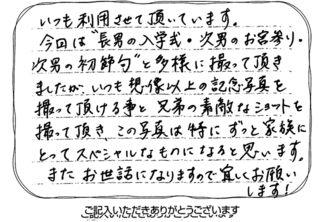 いつも利用させて頂いています。
今回は"長男の入学式・次男のお宮参り・
次男の初節句"と多様に撮って頂き
ましたが、いつも想像以上の記念写真を
撮って頂ける事と兄弟の素敵なショットを
撮って頂き この写真は特にずっと家族に
とってスペシャルなものになると思います。
また お世話になりますので宜しくお願い
します!
ご記入いただきありがとうございます